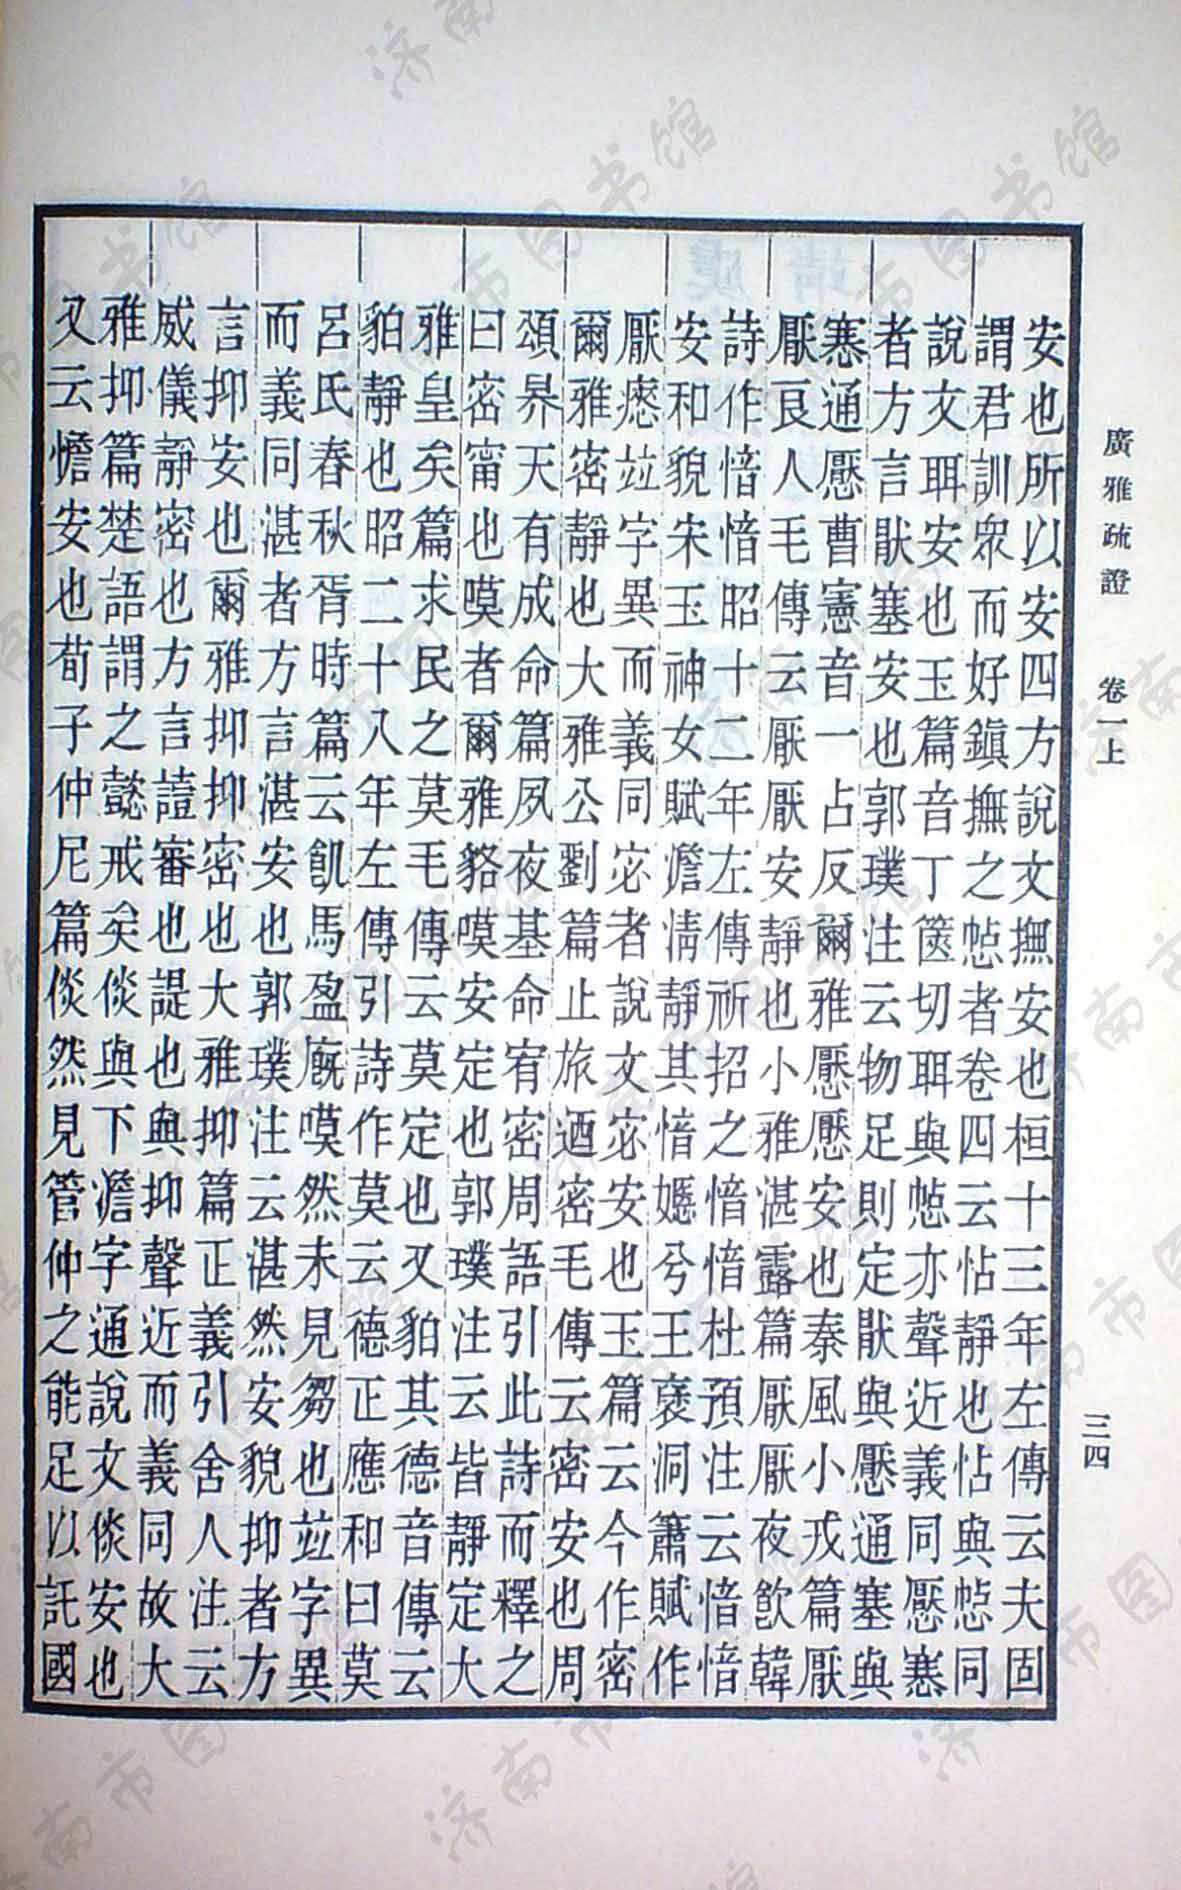 廣雅疏證 卷一上 三四
安也所以安四方說文撫安也桓十三年左傳云夫固
謂君訓眾而好鎮撫之惉者卷四云怗靜也怗與惉同
說文聑安也玉篇音丁篋切聑與惉亦聲近義同懕寒
者方言猒塞安也郭璞注云物足則定猒與懕通塞與
寒通懕曹憲音一占反爾雅懕懕安也秦風小戎篇厭
厭良人毛傳云厭厭安靜也小雅湛露篇厭厭夜飲韓
詩作愔愔昭十二年左傳祈招之愔愔杜預注云愔愔
安和貌宋玉神女賦澹清靜其愔嫕兮王褒洞簫賦作
厭瘱竝字異而義同宓者說文宓安也玉篇云今作密
爾雅密靜也大雅公劉篇止旅迺密毛傳云密安也周
頌昊天有成命篇夙夜基命宥密周語引此詩而釋之
曰密甯也嗼者爾雅貉嗼安定也郭璞注云皆靜定大
雅皇矣篇求民之莫毛傳云莫定也又貊其德音傳云
貊靜也昭二十八年左傳引詩作莫云德正應和曰莫
呂氏春秋胥時篇云飢馬盈廄嗼然未見芻也竝字異
而義同湛者方言湛安也郭璞注云湛然安貌抑者方
言抑安也爾雅抑抑密也大雅抑篇正義引舍人注云
威儀靜密也方言諲審也諟也與抑聲近而義同故大
雅抑篇楚語謂之懿戒矣倓與下澹字通說文倓安也
又云憺安也荀子仲尼篇倓然見管仲之能足以託國